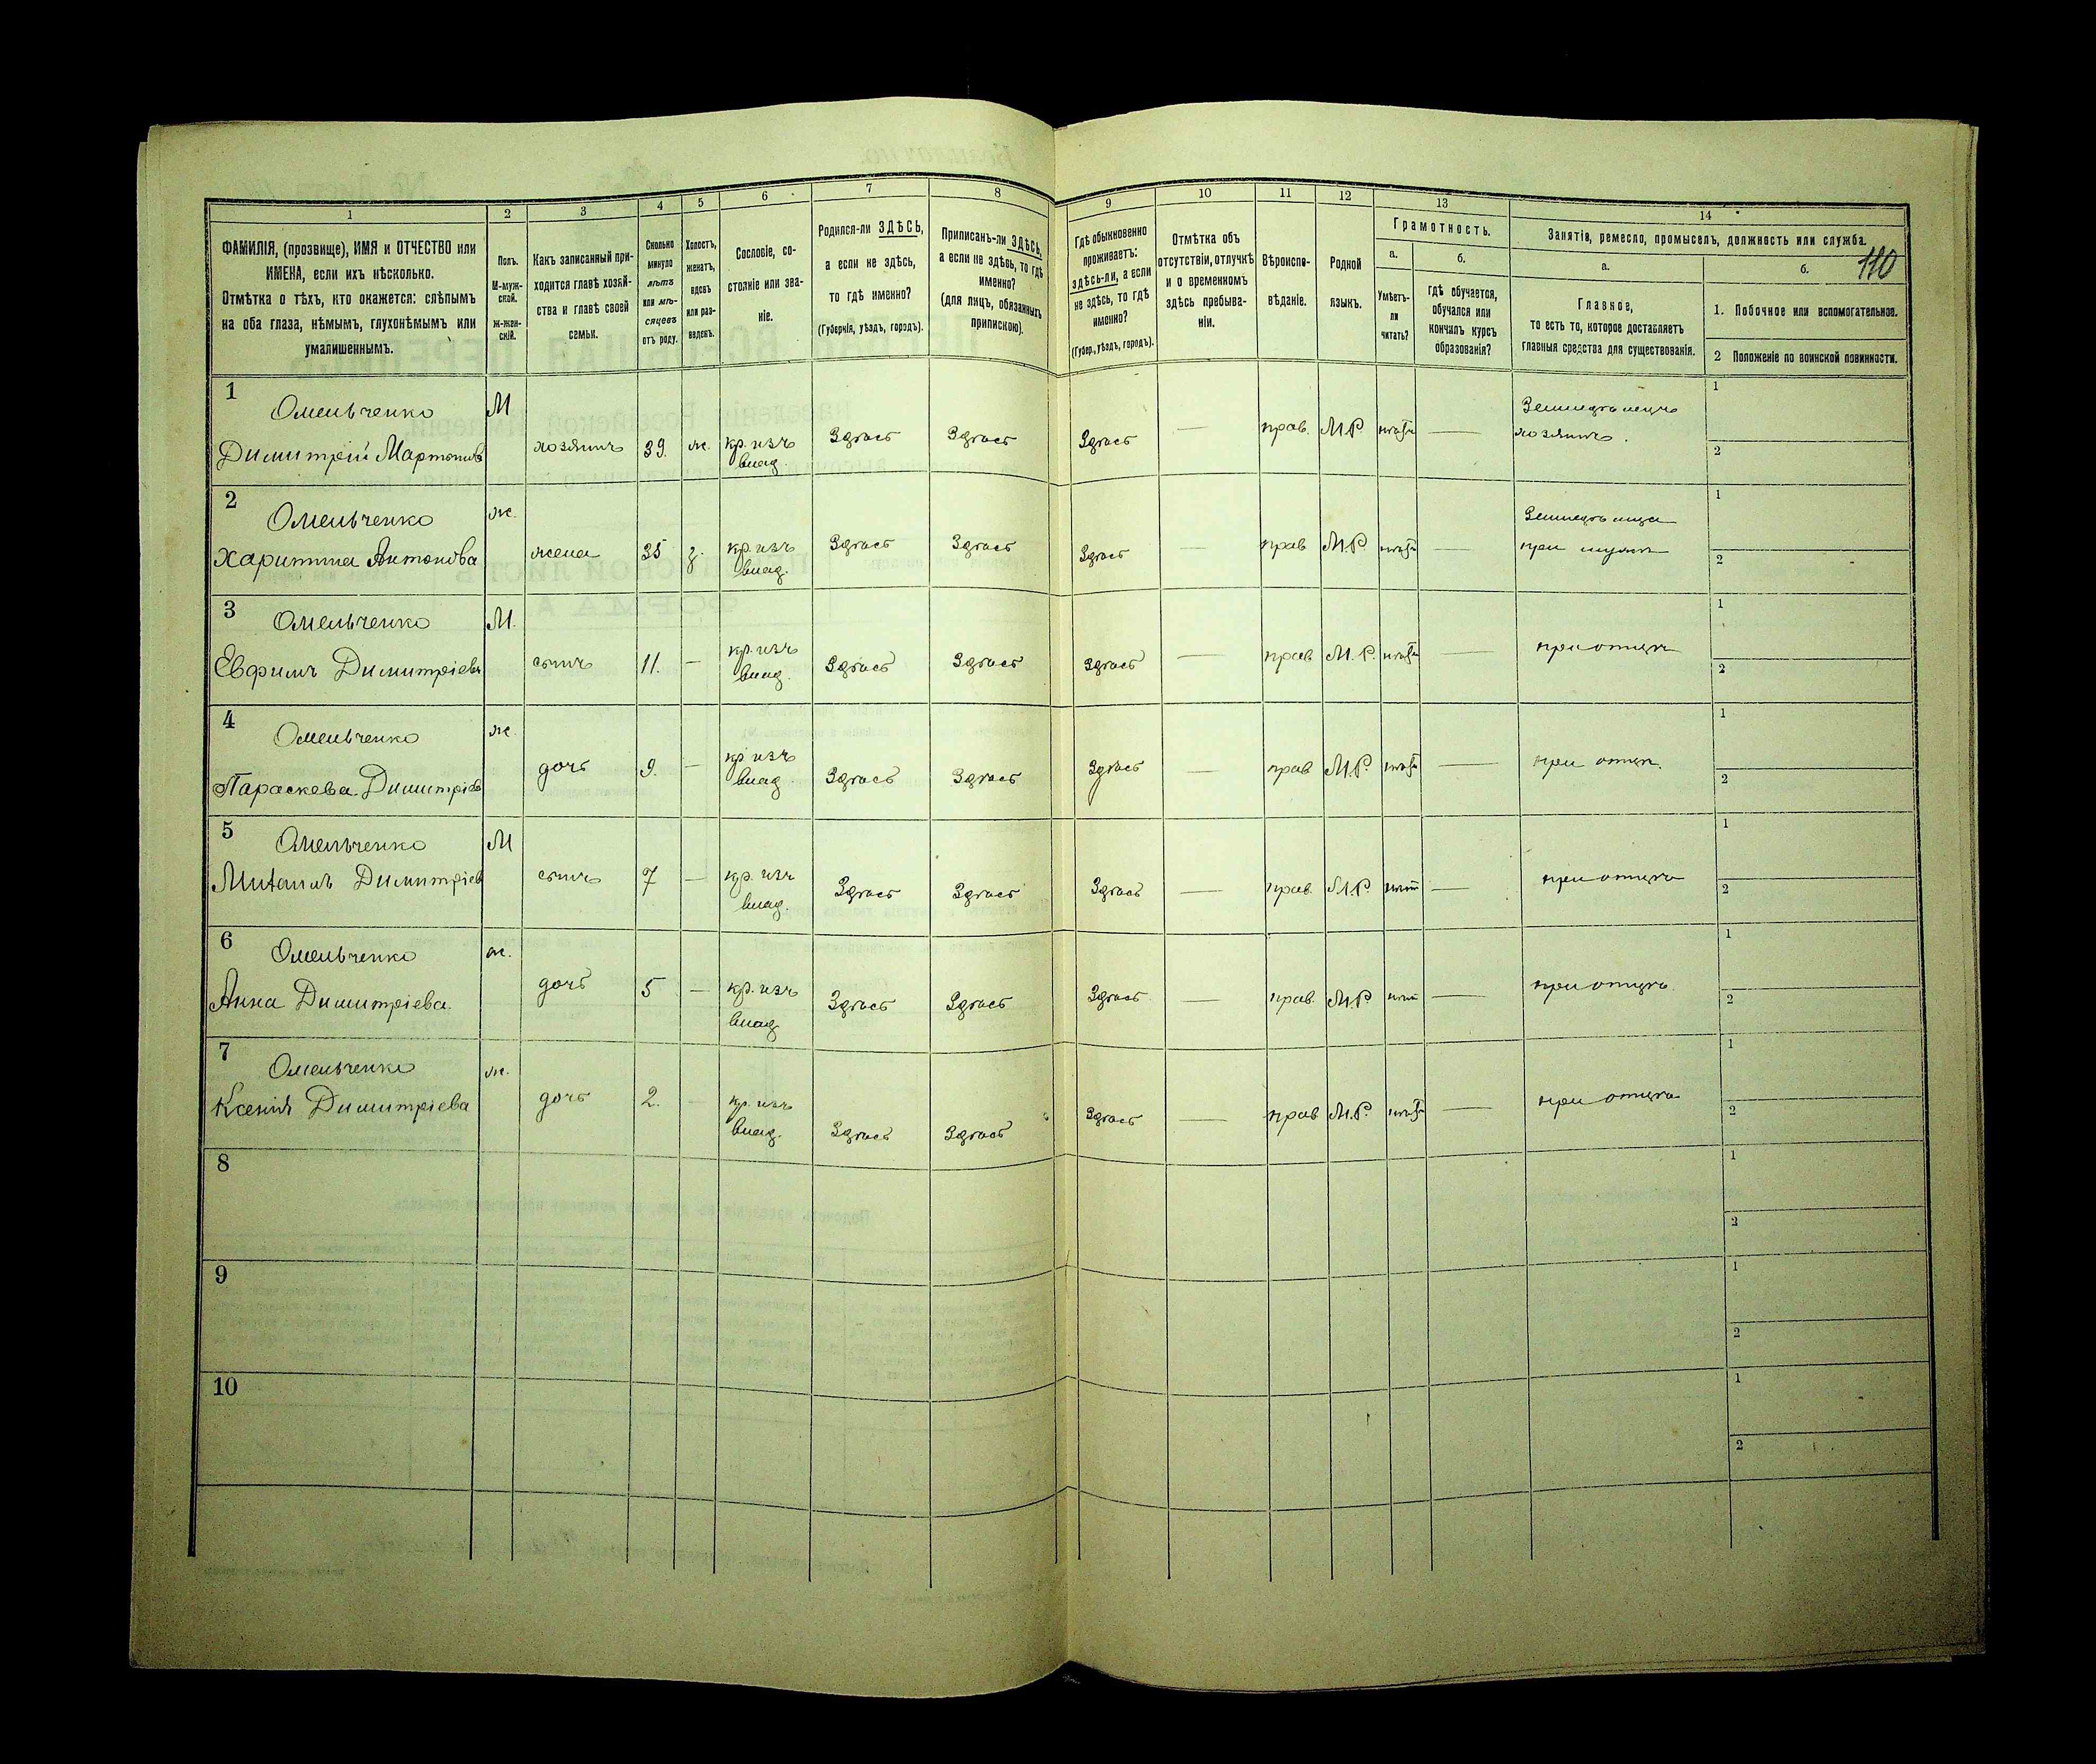 110
1 2 3 4 5 6 7 8 9 10 11 12 13 14
ФАМИЛІЯ, (прозвище), ИМЯ и ОТЧЕСТВО или
ИМЕНА, если ихъ нѣсколько.
Отмѣтка о тѣхъ, кто окажется: слѣпымъ
на оба глаза, нѣмымъ, глухонѣмымъ или
умалишеннымъ.
Полъ.
М-муж-
ской.
Ж-жен-
скій.
Какъ записанный при-
ходится главѣ хозяй-
ства и главѣ своей
семьи.
Сколько
минуло
лѣтъ
или мѣ-
сяцевъ
отъ роду.
Холостъ,
женатъ,
вдовъ
или раз-
веденъ.
Сословіе, со-
стояніе или зва-
ніе.
Родился-ли ЗДѢСЬ,
а если не здѣсь,
то гдѣ именно?
(Губернія, уѣздъ, городъ).
Приписанъ-ли ЗДѢСЬ,
а если не здѣсь, то гдѣ
именно?
(для лицъ, обязанныхъ
припискою).
Гдѣ обыкновенно
проживаетъ:
здѣсь-ли, а если
не здѣсь, то гдѣ
именно?
(Губер., уѣздъ, городъ).
Отмѣтка объ
отсутствіи, отлучкѣ
и о временномъ
здѣсь пребыва-
ніи.
Вѣроиспо-
вѣданіе.
Родной
языкъ.
Грамотность.
а.
Умѣетъ-
ли
читать?
б.
Гдѣ обучается,
обучался или
кончилъ курсъ
образованія?
Занятіе, ремесло, промыселъ, должность или служба.
а.
Главное,
то есть то, которое доставляетъ
главныя средства для существованія.
б.
1. Побочное или вспомогательное.
2 Положеніе по воинской повинности.
1 Омельченко М Земледѣлецъ 1
Димитрій Мартыновъ хозяинъ 39. ж. кр. изъ влад. Здѣсь Здѣсь Здѣсь — прав. М.Р. нѣтъ — хозяинъ. 2
2 Омельченко ж. 1
Харитина Антонова жена 35 з. кр. изъ влад. Здѣсь Здѣсь Здѣсь — прав М.Р. нѣтъ — при мужѣ 2
3 Омельченко М. 1
Евфимъ Димитріевъ сынъ 11. — кр. изъ влад. Здѣсь Здѣсь Здѣсь — прав М.Р. нѣтъ — при отцѣ 2
4 Омельченко ж. 1
Параскева Димитріев дочь 9. — кр изъ влад. Здѣсь Здѣсь Здѣсь — прав М.Р. нѣтъ — при отцѣ. 2
5 Омельченко М 1
Михаилъ Димитріев сынъ 7 — кр. изъ влад. Здѣсь Здѣсь Здѣсь — прав. М.Р. нѣтъ — при отцѣ 2
6 Омельченко ж. 1
Анна Димитріева. дочь 5 — кр. изъ влад Здѣсь Здѣсь Здѣсь — прав. М.Р. нѣтъ — при отцѣ 2
7 Омельченко ж. 1
Ксенія Димитріева дочь 2. — кр. изъ влад. Здѣсь Здѣсь Здѣсь — прав М.Р. нѣтъ — при отцѣ 2
8 1
2
9 1
2
10 1
2